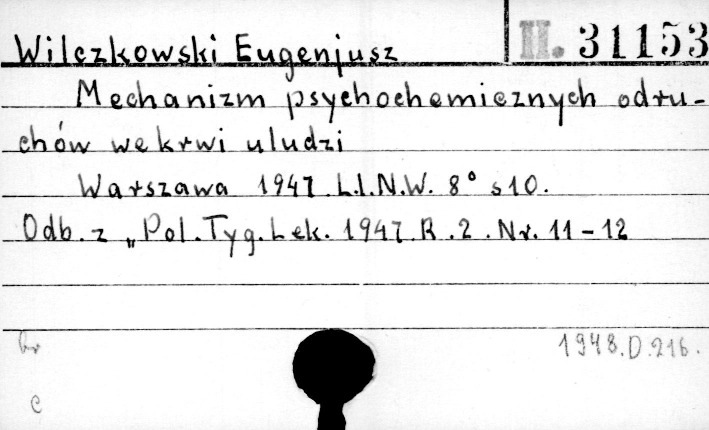 Wilczkowski Eugenjusz
II. 31153
Mechanizm psychochemicznych odru-
chów we krwi u ludzi
Warszawa 1947. L.I.N.W. 8° s 10.
Odb. z „Pol. Tyg. Lek. 1947. R. 2. Nr. 11-12
br
1948.D.216.
c